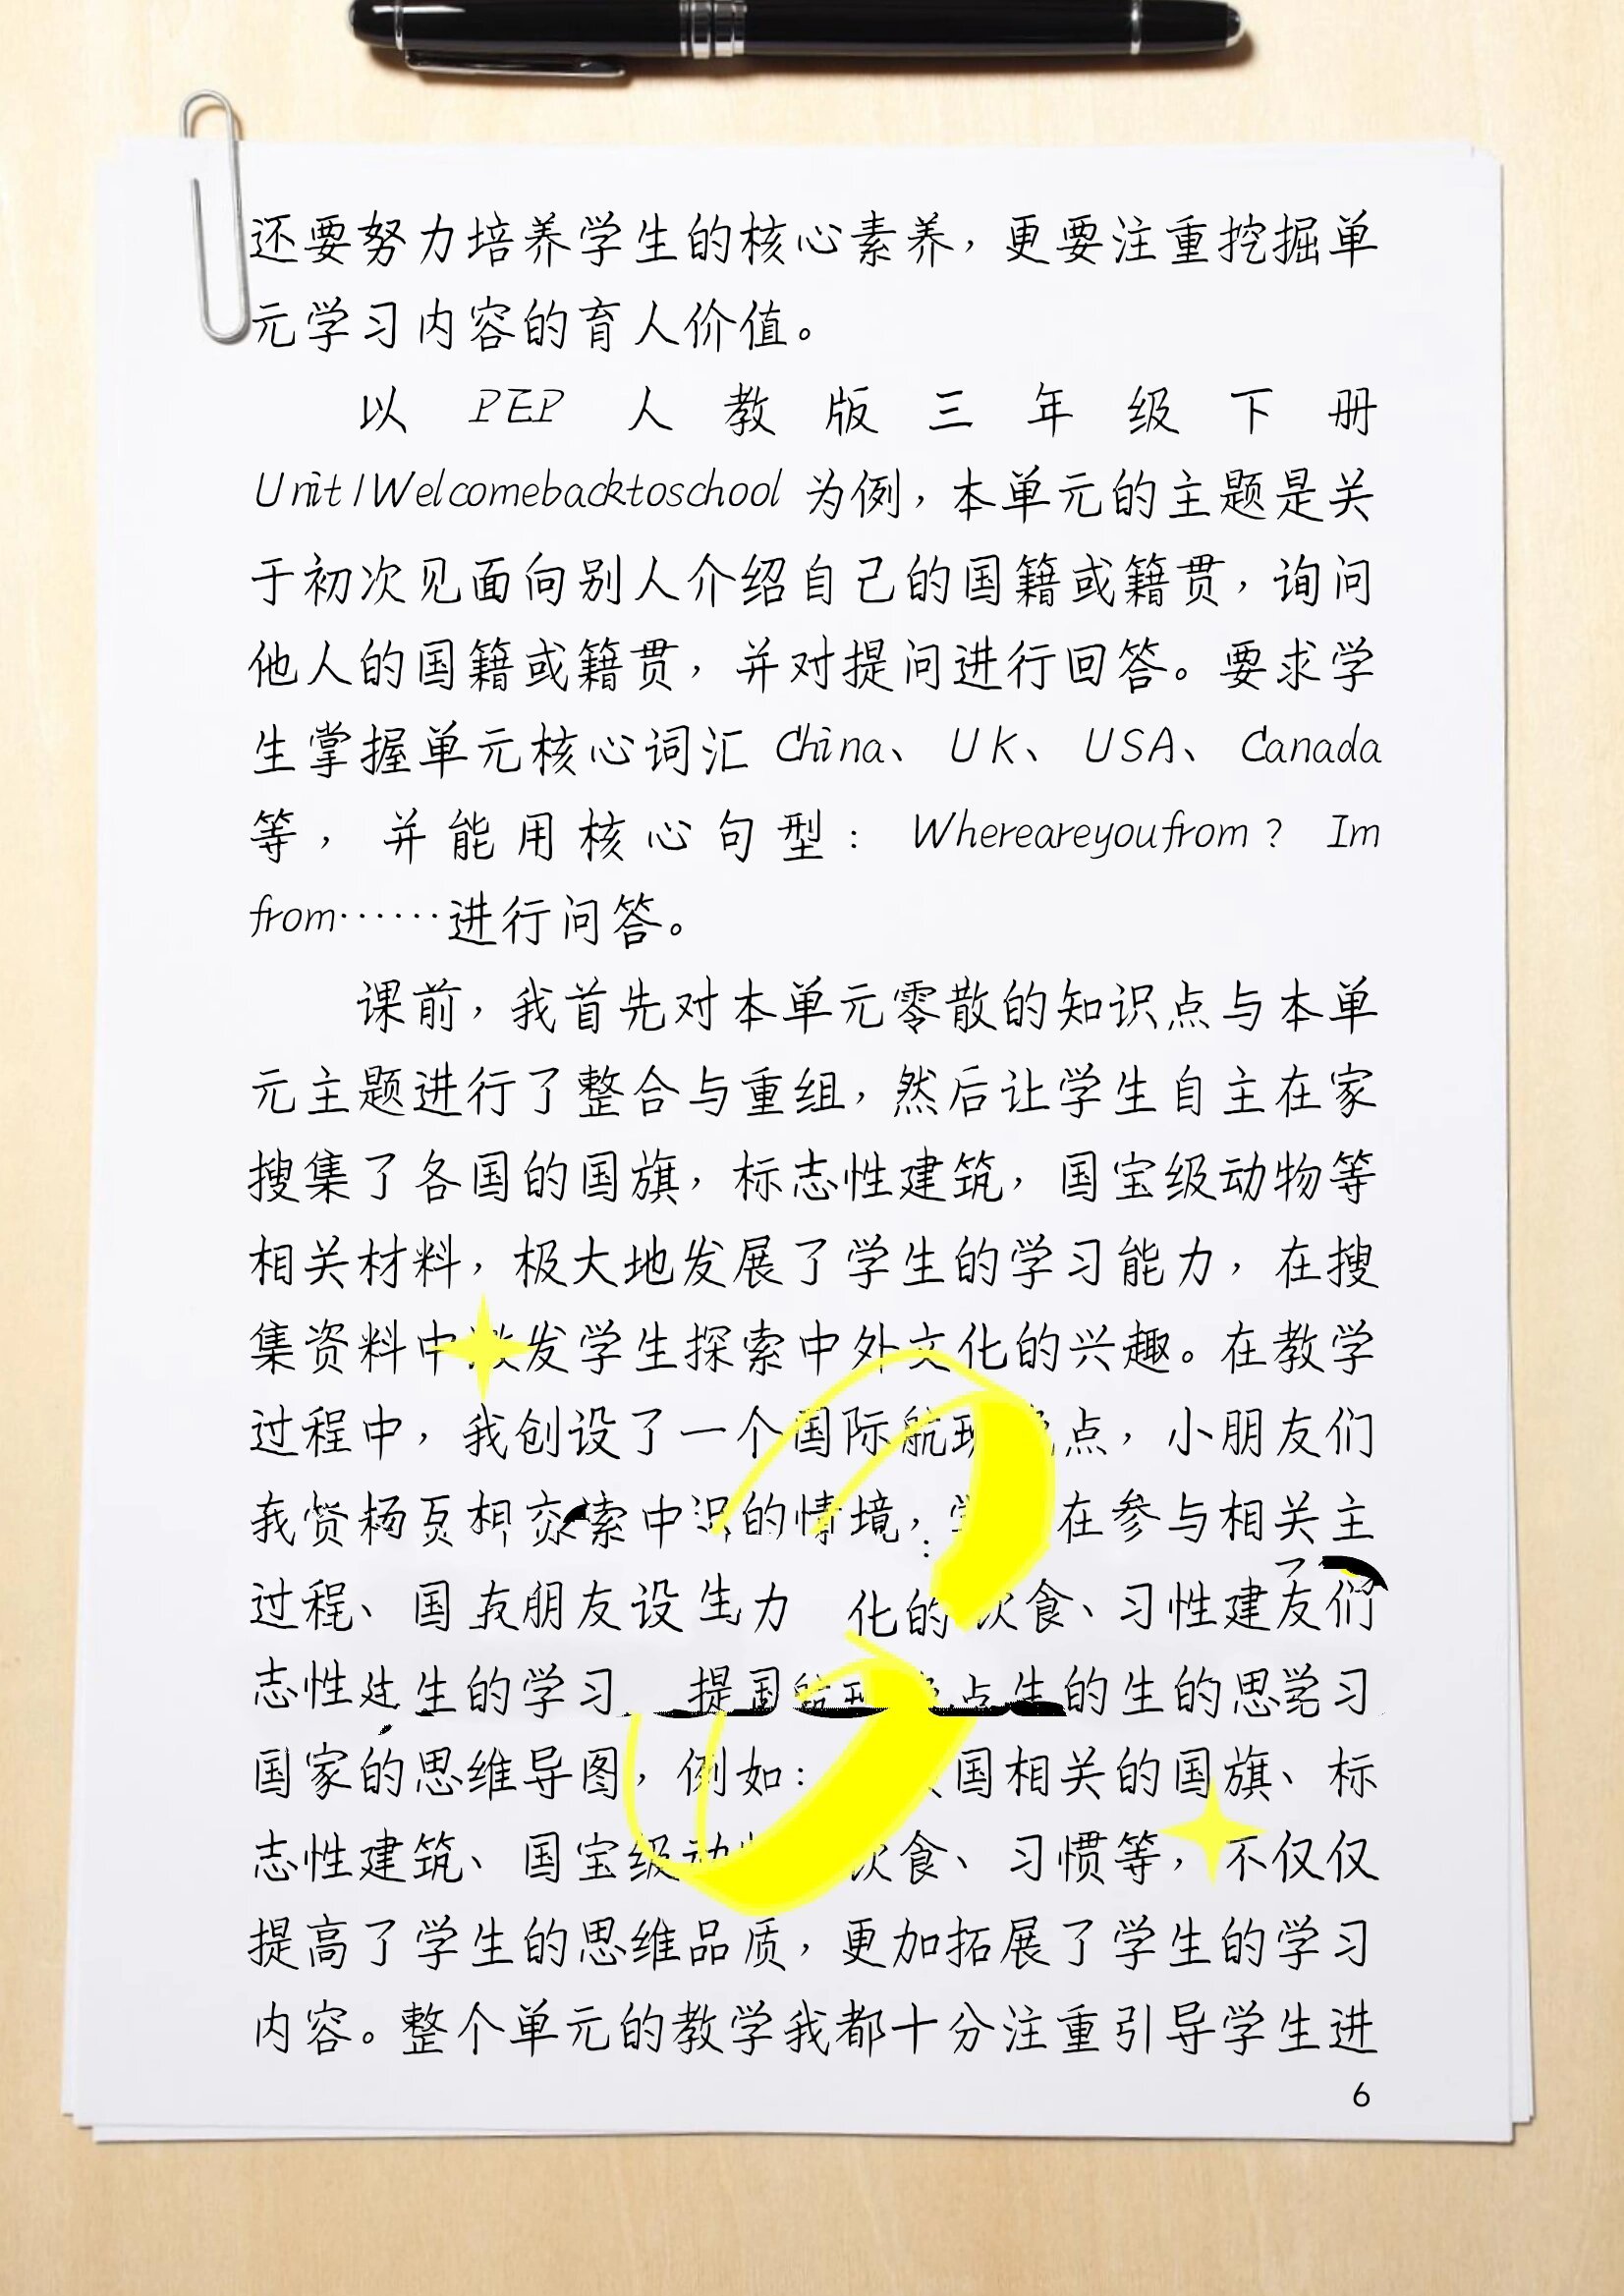 还要努力培养学生的核心素养，更要注重挖掘单
元学习内容的育人价值。
以 PEP 人教版三年级下册
Unit1Welcomebacktoschool 为例，本单元的主题是关
于初次见面向别人介绍自己的国籍或籍贯，询问
他人的国籍或籍贯，并对提问进行回答。要求学
生掌握单元核心词汇 China、UK、USA、Canada
等，并能用核心句型：Whereareyoufrom？Im
from……进行问答。
课前，我首先对本单元零散的知识点与本单
元主题进行了整合与重组，然后让学生自主在家
搜集了各国的国旗，标志性建筑，国宝级动物等
相关材料，极大地发展了学生的学习能力，在搜
集资料中发学生探索中外文化的兴趣。在教学
过程中，我创设了一个国际航点，小朋友们
索中的情境，在参与相关主
过程、国朋友设生力 化的食、习性建友们
志性生的学习 提的生的思习
国家的思维导图，例如：国相关的国旗、标
志性建筑、国宝级动食、习惯等，不仅仅
提高了学生的思维品质，更加拓展了学生的学习
内容。整个单元的教学我都十分注重引导学生进
6